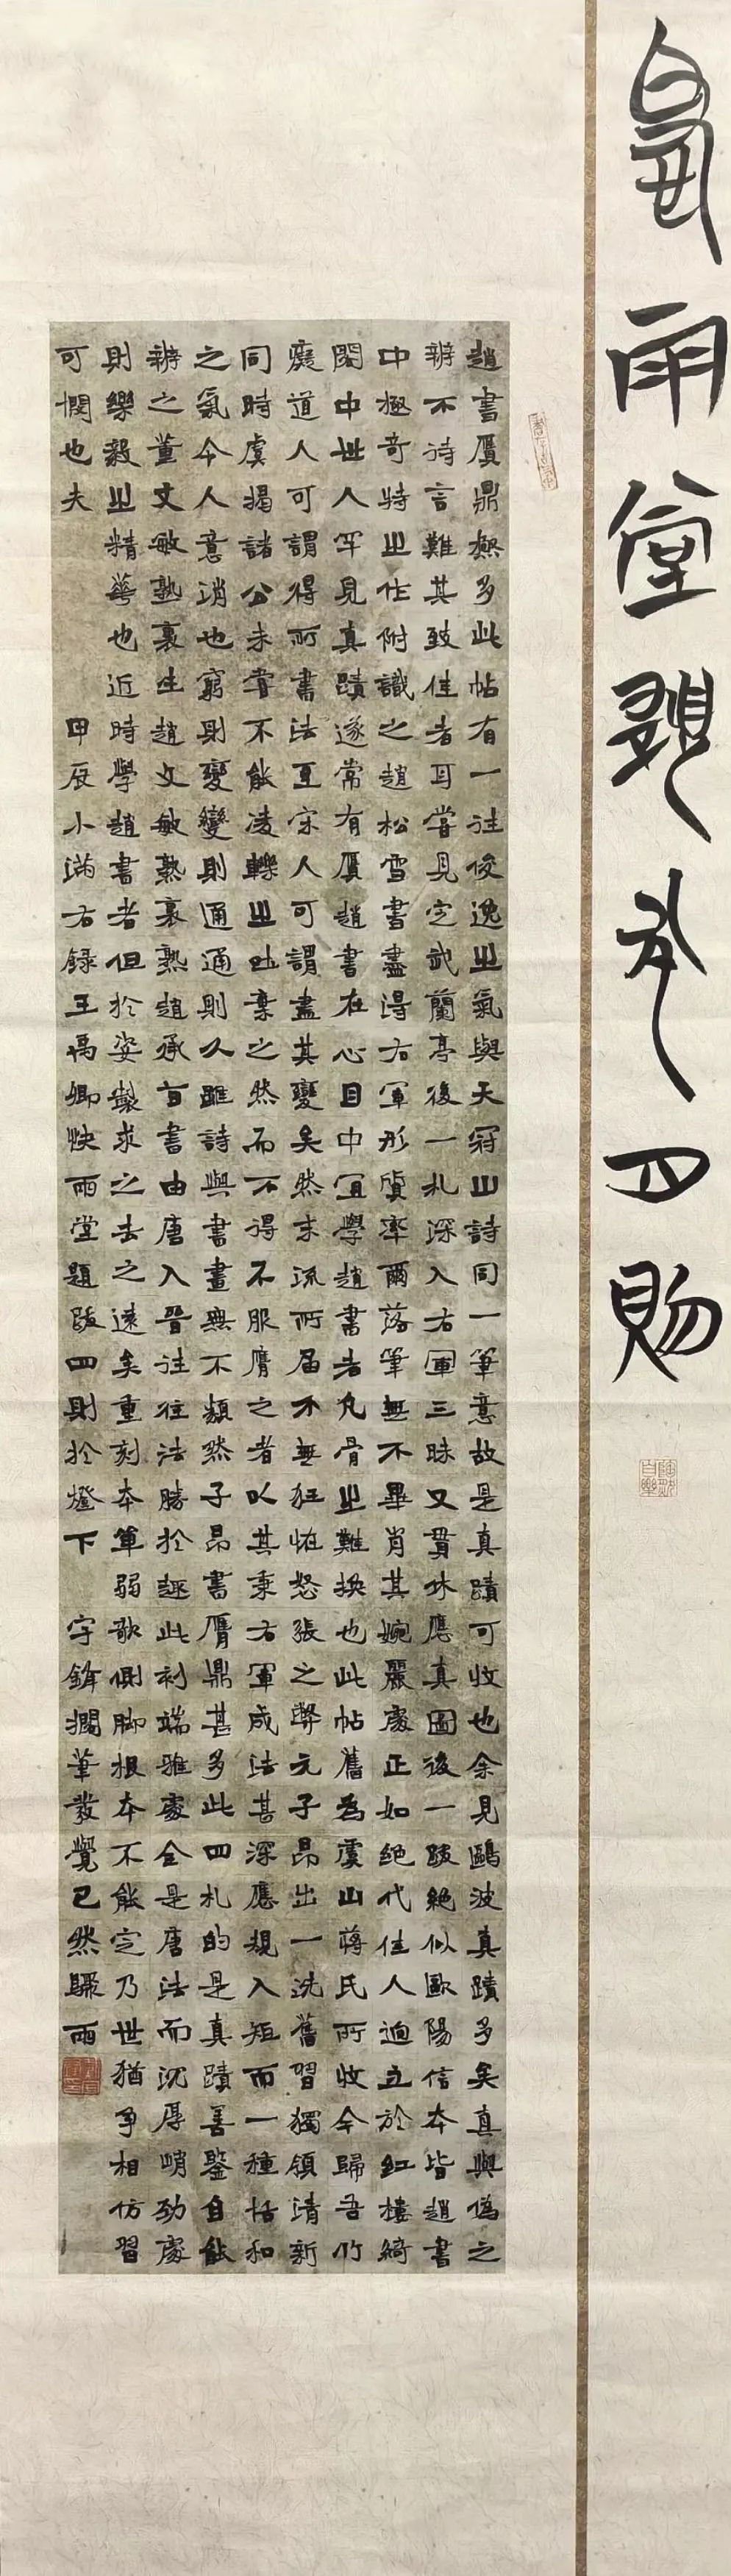 快雨堂題跋四則
趙書贋鼎極多此帖有一往俊逸之氣與天冠山詩同一筆意故是真蹟可收也余見鷗波真蹟多矣真與偽之
辨不待言難其致佳者耳嘗見定武蘭亭後一札深入右軍三昧又貫休應真圖後一跋絕似歐陽信本皆趙書
中極奇特之作附識之趙松雪書盡得右軍形質率爾落筆無不畢肖其婉麗處正如絕代佳人迥立於紅樓綺
閣中世人罕見真蹟遂常有贋趙書在心目中宜學趙書者凡骨之難換也此帖舊為虞山蔣氏所收今歸吾竹
癡道人可謂得所書法至宋人可謂盡其變矣然末流所屆不無狂怪怒張之弊元子昂出一洗舊習獨領清新
同時虞揭諸公未嘗不能凌轢之吐棄之然而不得不服膺之者以其秉右軍成法甚深應規入矩而一種恬和
之氣令人意消也窮則變變則通通則久雖詩與書畫無不類然子昂書贋鼎甚多此四札的是真蹟善鑒自能
辨之董文敏熟裏生趙文敏熟裏熟趙承旨書由唐入晉往往法勝於趣此刻端雅處全是唐法而沉厚峭勁處
則樂毅之精華也近時學趙書者但於姿製求之去之遠矣重刻本單弱欹側脚根本不能定乃世猶爭相仿習
可憫也夫 甲辰小滿右錄王禹卿快雨堂題跋四則於燈下 宇 擱筆發覺已然驟雨